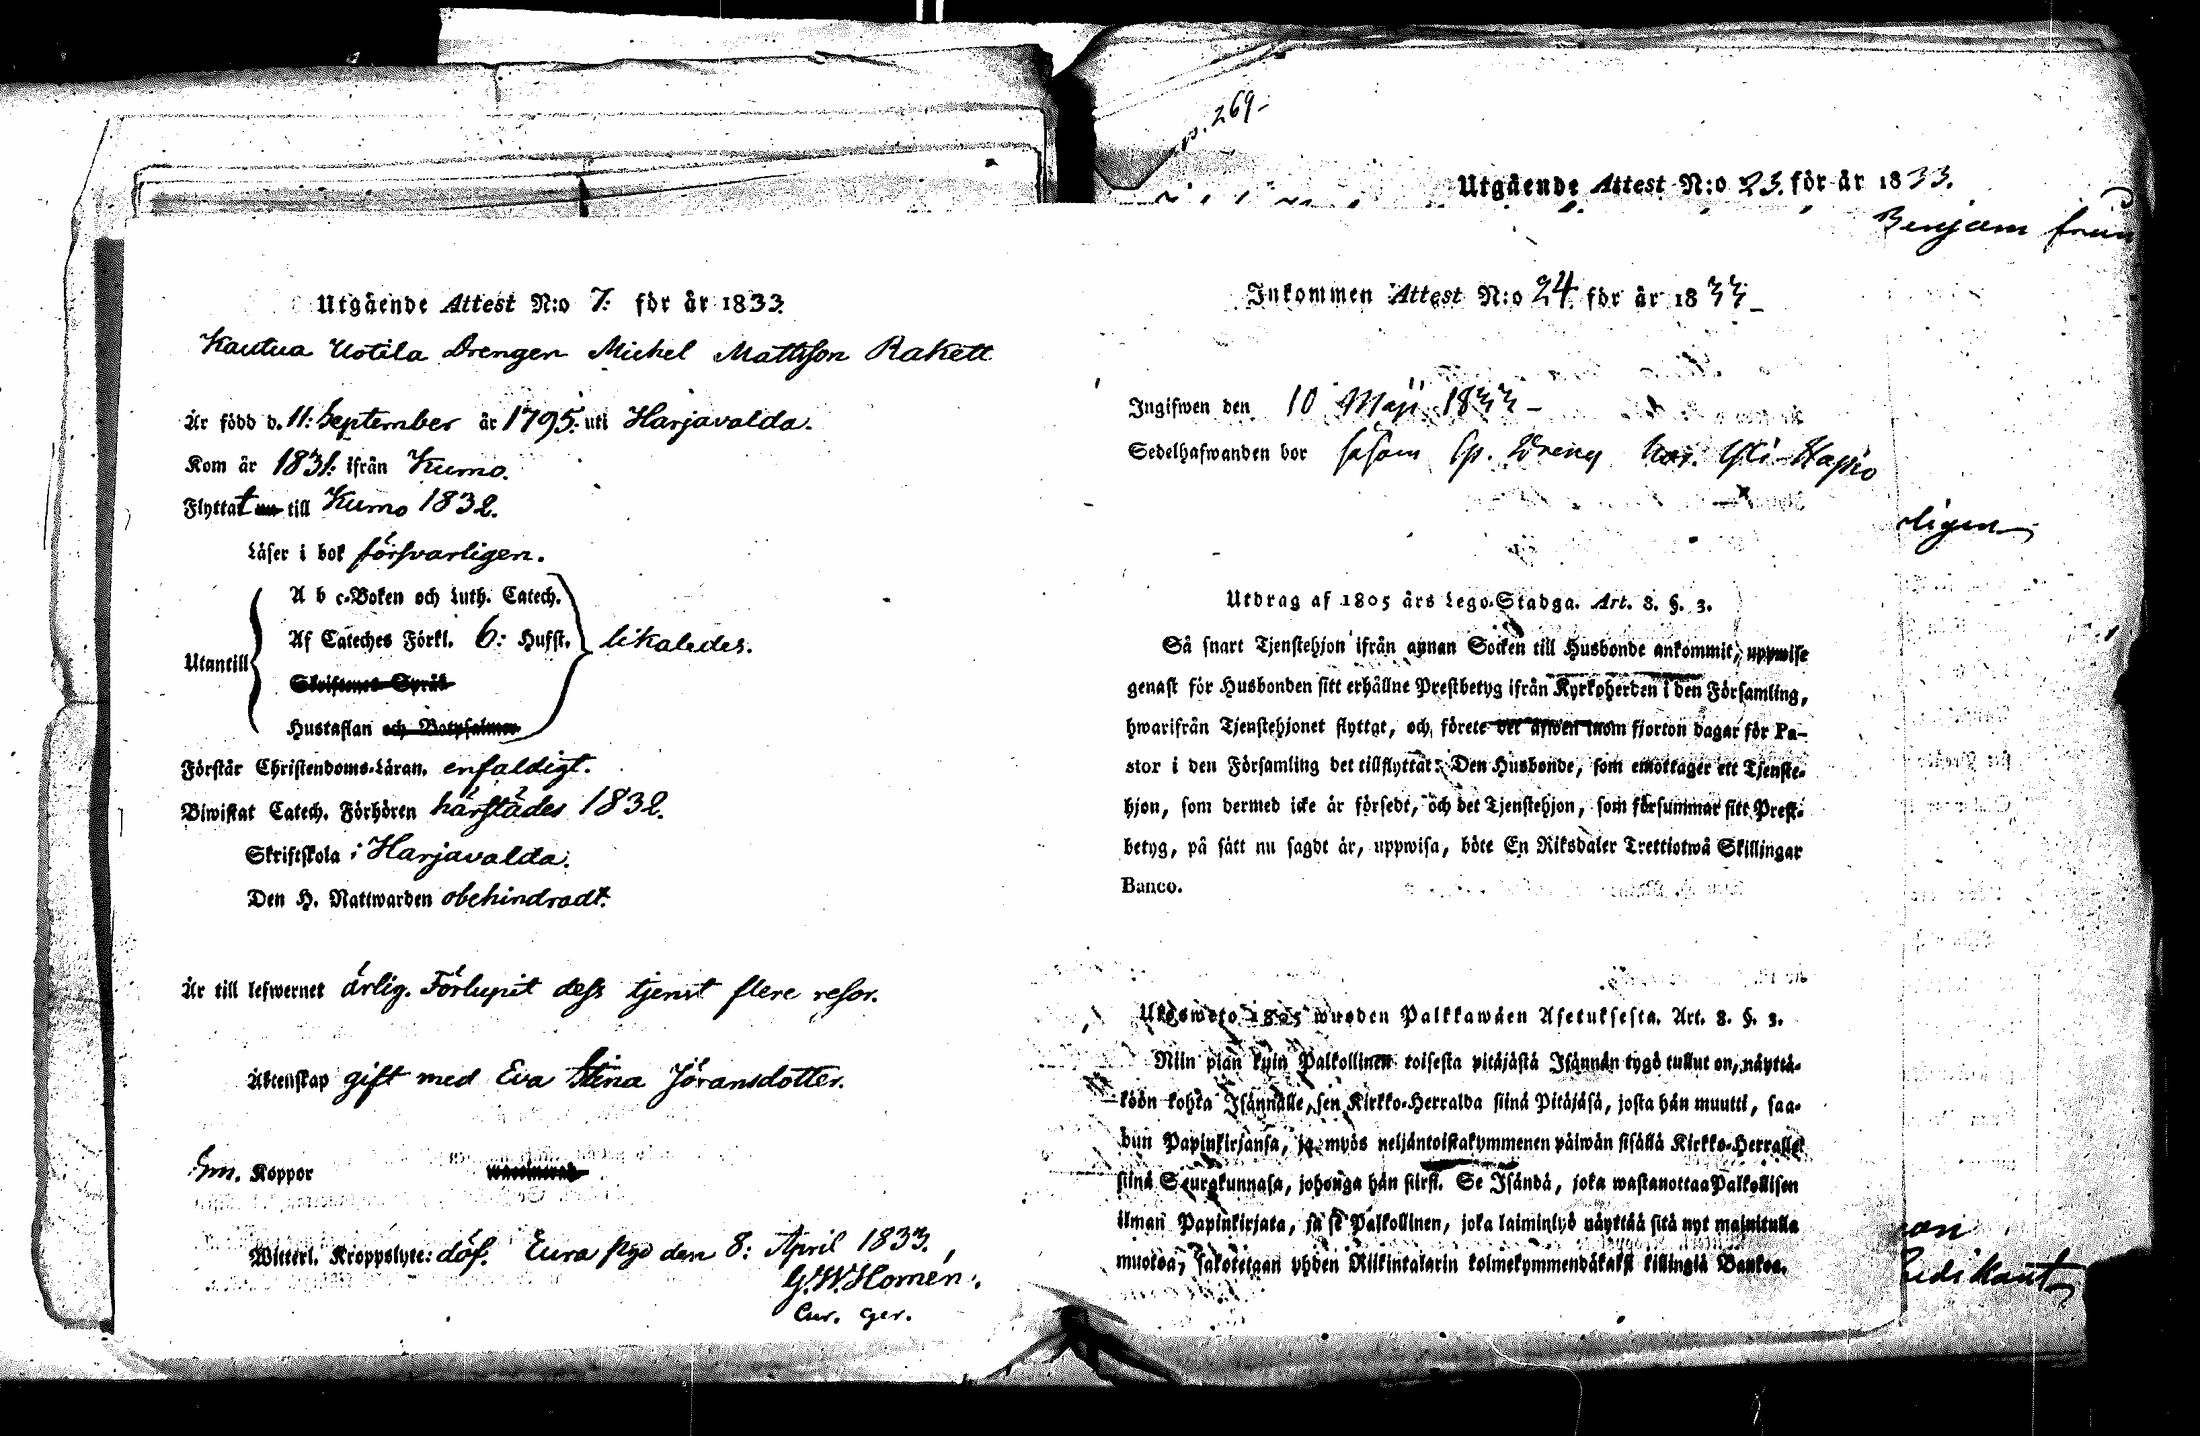 Utgående Attest N:o 7. för år 1833.
Kautua Uotila Drengen Michel Mattsson Rakett
Är född d. 11: September år 1795. uti Harjavalda.
Kom år 1831. ifrån Kumo.
Flyttat nu till Kumo 1832.
Läser i bok försvarligen.
A b c-Boken och Luth. Catech.
Af Cateches Förkl. 6: Hufst.
likaledes.
Utantill
Skriftenes Språk
Hustaflan och Botpsalmer
Förstår Christendoms-Läran. enfaldigt.
Biwistat Catech. Förhören härstädes 1832.
Skriftskola i Harjavalda.
Den H. Nattwarden obehindradt.
Är till lefwernet ärlig. Förlupit dess tjenst flere resor.
Äktenskap gift med Eva Stina Jöransdotter.
Koppor
Witterl. Kroppslyte: döf. Eura den 8: April 1833.
G. W. Homén.
Cur. ger.
p. 269-
Utgående Attest N:o 23. för år 1833.
Benjam från
Inkommen Attest N:o 24. för år 1833-
Ingifwen den 10 Maji 1833-
Sedelhafwanden bor såsom Sp. Dreng
ligen
Utdrag af 1805 års Lego-Stadga. Art. 8. §. 3.
Så snart Tjenstehjon ifrån annan Socken till Husbonde ankommit, uppwise
genast för Husbonden sitt erhållne Prestbetyg ifrån Kyrkoherden i den Församling,
hwarifrån Tjenstehjonet flyttat, och förete det äfwen inom fjorton dagar för Pa-
stor i den Församling det tillflyttat: Den Husbonde, som emottager ett Tjenste-
hjon, som dermed icke är försedt, och det Tjenstehjon, som försummar sitt Prest-
betyg, på sätt nu sagdt är, uppwisa, böte En Riksdaler Trettiotwå Skillingar
Banco.
Ulosweto 1805 wuoden Palkkawäen Asetuksesta. Art. 8. §. 3.
Niin pian kuin Palkollinen toisesta pitäjästä Isännän tygö tullut on, näyttä-
köön kohta Isännälle, sen Kirkko-Herralda siinä Pitäjäsä, josta hän muutti, saa-
dun Papinkirjansa, ja myös neljäntoistakymmenen päiwän sisällä Kirkko-Herralle
siinä Seurakunnasa, johonga hän siirsi. Se Isändä, joka wastanottaa Palkollisen
ilman Papinkirjata, ja se Palkollinen, joka laiminlyö näyttää sitä nyt mainitulla
muotoa, sakotetaan yhden Riikintalarin kolmekymmendäkaksi killingiä Bankoa.